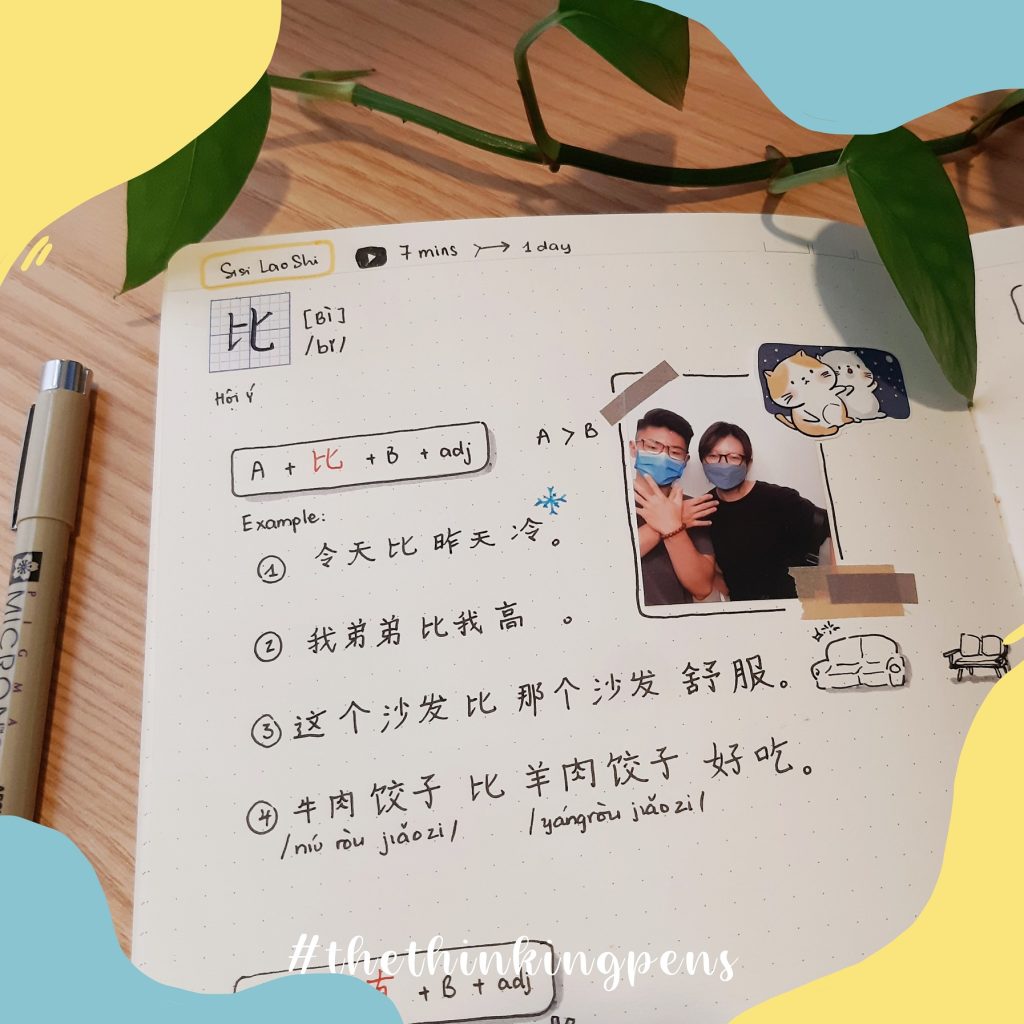 Sisi LaoShi 7 mins → 1 day
比 [Bì]
/bǐ/
Hội ý
A + 比 + B + adj
A > B
Example:
① 今天比昨天冷。
② 我弟弟比我高 。
③ 这个沙发比那个沙发舒服。
④ 牛肉饺子比羊肉饺子好吃。
/níu ròu jiǎozi/ /yángròu jiǎozi/
+ B + adj
PIGMA
MICRON
#thethinkingpens